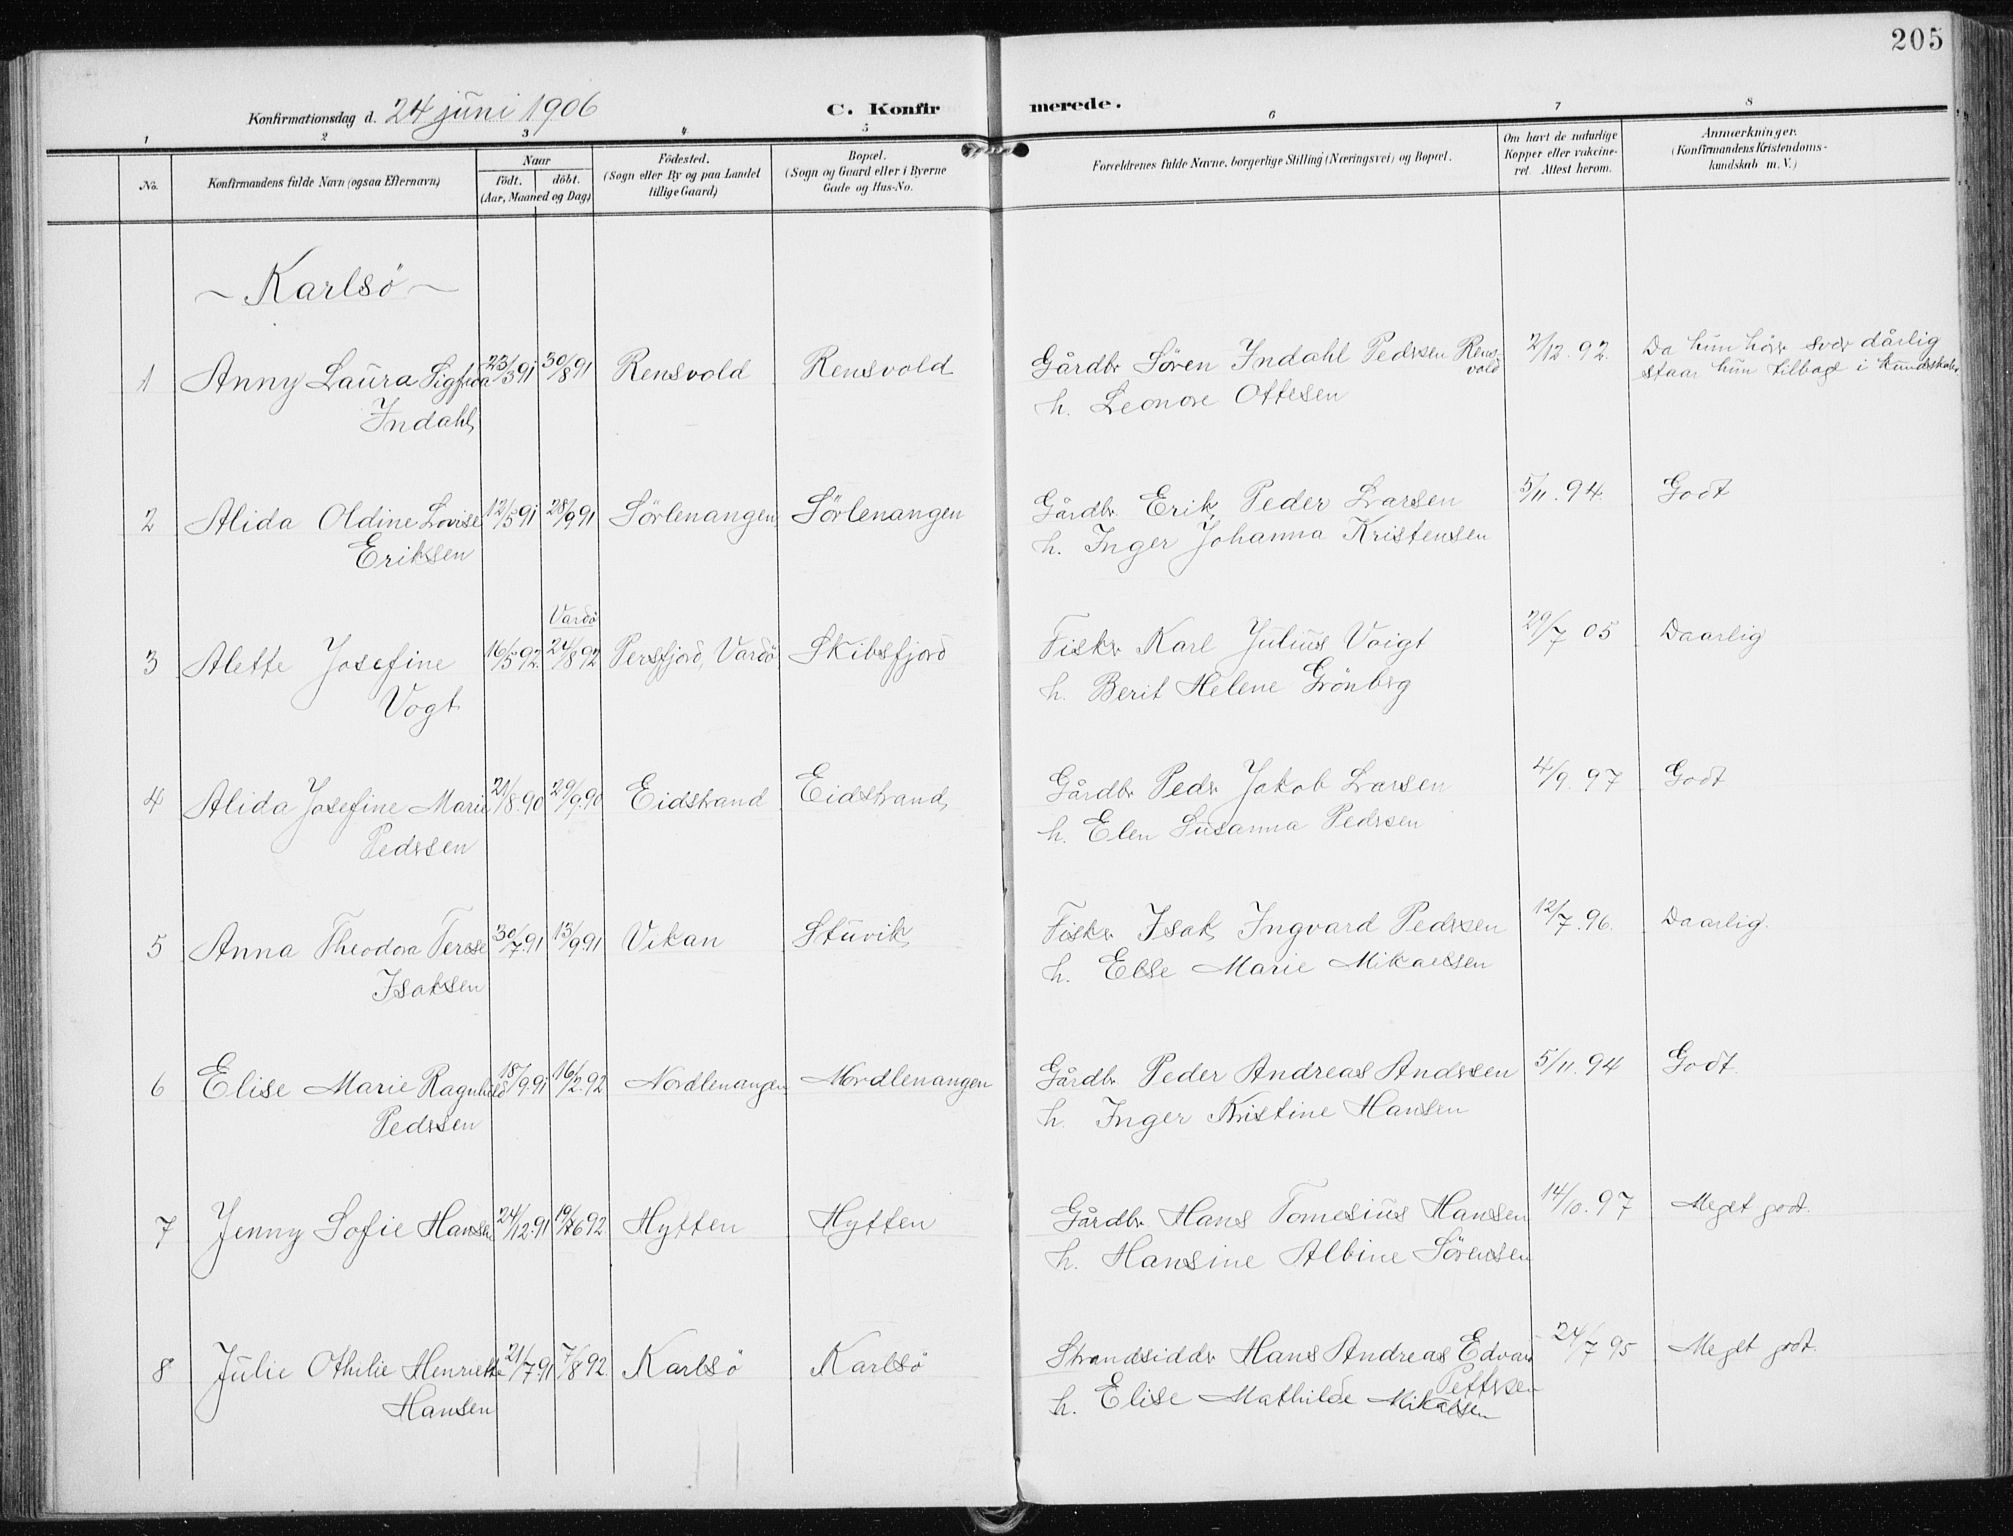 205
Konfirmationsdag d. 24 juni 1906
C. Konfirmerede.
1 2 3 4 5 6 7 8
No. Konfirmandens fulde Navn (ogsaa Efternavn)
Naar
födt. döbt.
(Aar, Maaned og Dag)
Födested.
(Sogn eller By og paa Landet
tillige Gaard)
Bopæl.
(Sogn og Gaard eller i Byerne
Gade og Hus-No.
Forældrenes fulde Navne, borgerlige Stilling (Næringsvei) og Bopæl.
Om havt de naturlige
Kopper eller vakcine-
ret Attest herom.
Anmærkninger.
(Konfirmandens Kristendoms-
kundskab m. V.)
~ Karlsö ~
1 Anny Laura Sigfrida 23/3 91 30/8 91 Rensvold Rensvold Gårdbr Sören Indahl Pedersen Rens- 2/12. 92. Da hun hörer svær dårlig
Indahl vold staar hun tilbage i kundskaber
h. Leonore Ottesen
2 Alida Oldine Lovise 12/5 91 28/9 91 Sörlenangen Sörlenangen Gårdbr Erik Peder Larsen 5/11. 94. Godt
Eriksen h. Inger Johanna Kristensen
Vardö
3 Alette Josefine 16/5 92. 24/8 92 Persfjord, Vardö Skibsfjord Fisker Karl Julius Voigt 29/7 05 Daarlig
Vogt h. Berit Helene Grönberg
4 Alida Josefine Marie 21/8.90 29/9.90 Eidstrand Eidstrand Gårdbr Peder Jakob Larsen 4/9. 97 Godt
Pedersen h. Elen Susanna Pedersen
5 Anna Theodora Terese 30/7.91 13/9 91 Vikan Stuvik Fisker Isak Ingvard Pedersen 12/7. 96. Daarlig.
Isaksen h. Else Marie Mikaelsen
6 Elise Marie Ragnhild 18/9.91 16/2.92. Nordlenangen Nordlenangen Gårdbr Peder Andreas Andersen 5/11. 94 Godt.
Pedersen h. Inger Kristine Hansen
7 Jenny Sofie Hansen 24/12.91 Hytten Hytten Gårdbr. Hans Tomesius Hansen 14/10. 97 Meget godt.
h. Hansine Albine Sörensen
8 Julie Othilie Henriette 21/7.91 7/8 92. Karlsö Karlsö Strandsidder Hans Andreas Edvard 24/7 95 Meget godt.
Hansen Pettersen
h. Elise Mathilde Mikalsen